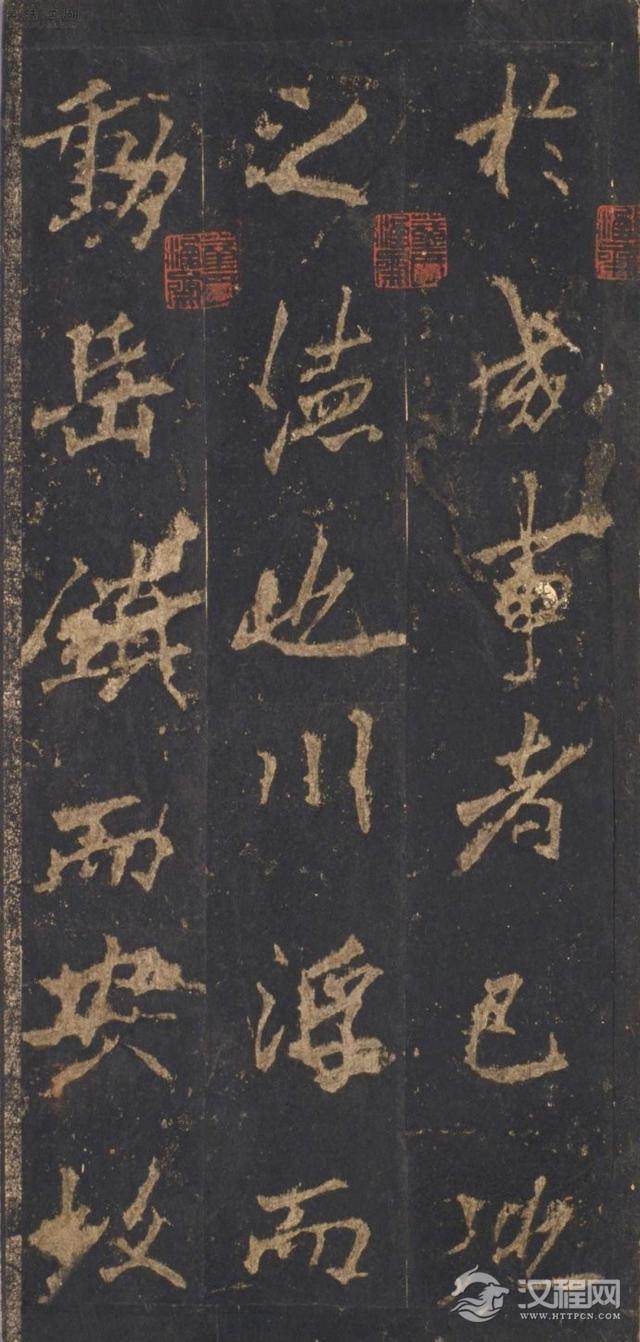 於成事者已
之德也川浮而
動岳而
汉程网
WWW.HTTPCN.COM